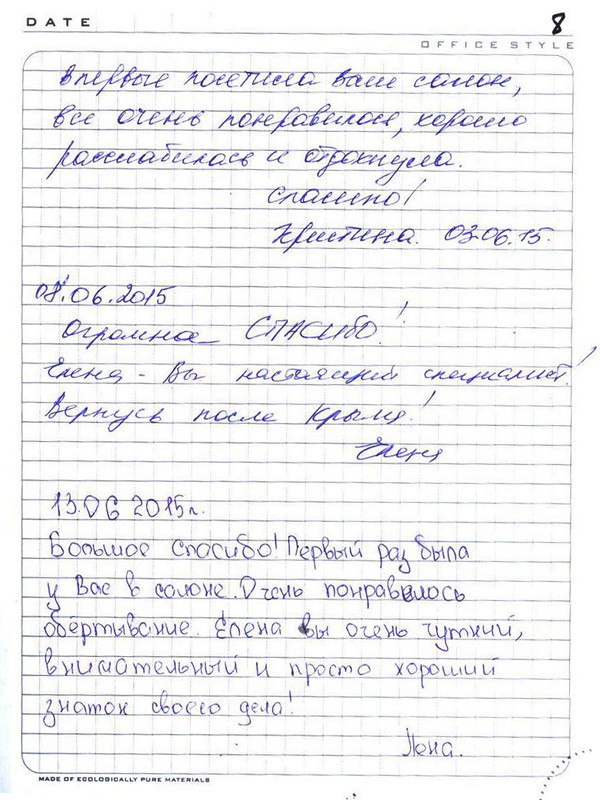 DATE
8
OFFICE STYLE
Впервые посетила ваш салон,
все очень понравилось, хорошо
расслабилась и отдохнула.
Спасибо!
Кристина. 03.06.15.
08.06.2015
Огромное СПАСИБО!
Елена - Вы настоящий специалист!
Вернусь после Крыма!
Елена
13.06 2015г.
Большое спосибо! Первый раз была
у Вас в салоне. Очень понравилось
обёртывание. Елена вы очень чуткий,
внимательный и просто хороший
знаток своего дела!
Лена.
MADE OF ECOLOGICALLY PURE MATERIALS